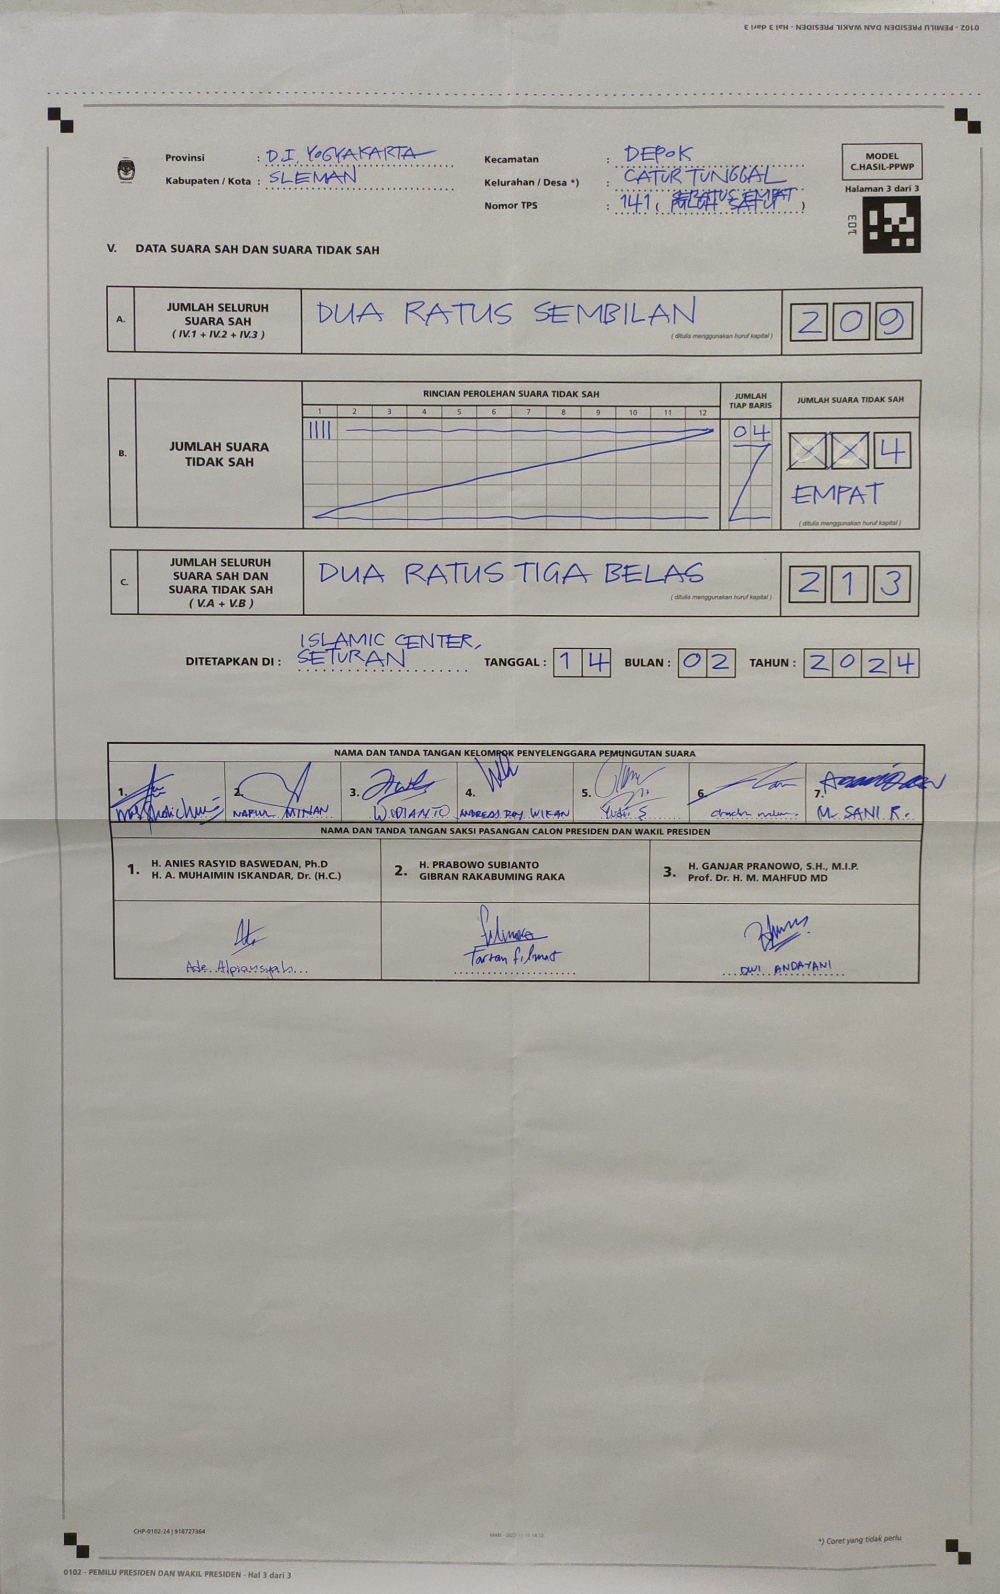 0102 - PEMILU PRESIDEN DAN WAKIL PRESIDEN - Hal 3 dari 3
Provinsi : D.I. YOGYAKARTA
Kabupaten / Kota : SLEMAN
Kecamatan : DEPOK
Kelurahan / Desa *) : CATUR TUNGGAL
Nomor TPS : 141 ( SERATUS EMPAT PULUH SATU )
MODEL
C.HASIL-PPWP
Halaman 3 dari 3
V. DATA SUARA SAH DAN SUARA TIDAK SAH
A. JUMLAH SELURUH SUARA SAH ( IV.1 + IV.2 + IV.3 )
DUA RATUS SEMBILAN
( ditulis menggunakan huruf kapital )
2 0 9
B. JUMLAH SUARA TIDAK SAH
RINCIAN PEROLEHAN SUARA TIDAK SAH
1 2 3 4 5 6 7 8 9 10 11 12
JUMLAH TIAP BARIS
04
JUMLAH SUARA TIDAK SAH
X X 4
EMPAT
( ditulis menggunakan huruf kapital )
C. JUMLAH SELURUH SUARA SAH DAN SUARA TIDAK SAH ( V.A + V.B )
DUA RATUS TIGA BELAS
( ditulis menggunakan huruf kapital )
2 1 3
DITETAPKAN DI : ISLAMIC CENTER, SETURAN
TANGGAL : 14 BULAN : 02 TAHUN : 2024
NAMA DAN TANDA TANGAN KELOMPOK PENYELENGGARA PEMUNGUTAN SUARA
1.
2. MINAN
3. WIDIANTO
4. ANDREAS ROY WIKAN
5. Yudi S
6.
7. M. SANI R.
NAMA DAN TANDA TANGAN SAKSI PASANGAN CALON PRESIDEN DAN WAKIL PRESIDEN
1. H. ANIES RASYID BASWEDAN, Ph.D
H. A. MUHAIMIN ISKANDAR, Dr. (H.C.)
2. H. PRABOWO SUBIANTO
GIBRAN RAKABUMING RAKA
3. H. GANJAR PRANOWO, S.H., M.I.P.
Prof. Dr. H. M. MAHFUD MD
Ade Alpiansyah
Tartan filmat
DWI ANDAYANI
CHP-0102-24 | 918727364
*) Coret yang tidak perlu
0102 - PEMILU PRESIDEN DAN WAKIL PRESIDEN - Hal 3 dari 3